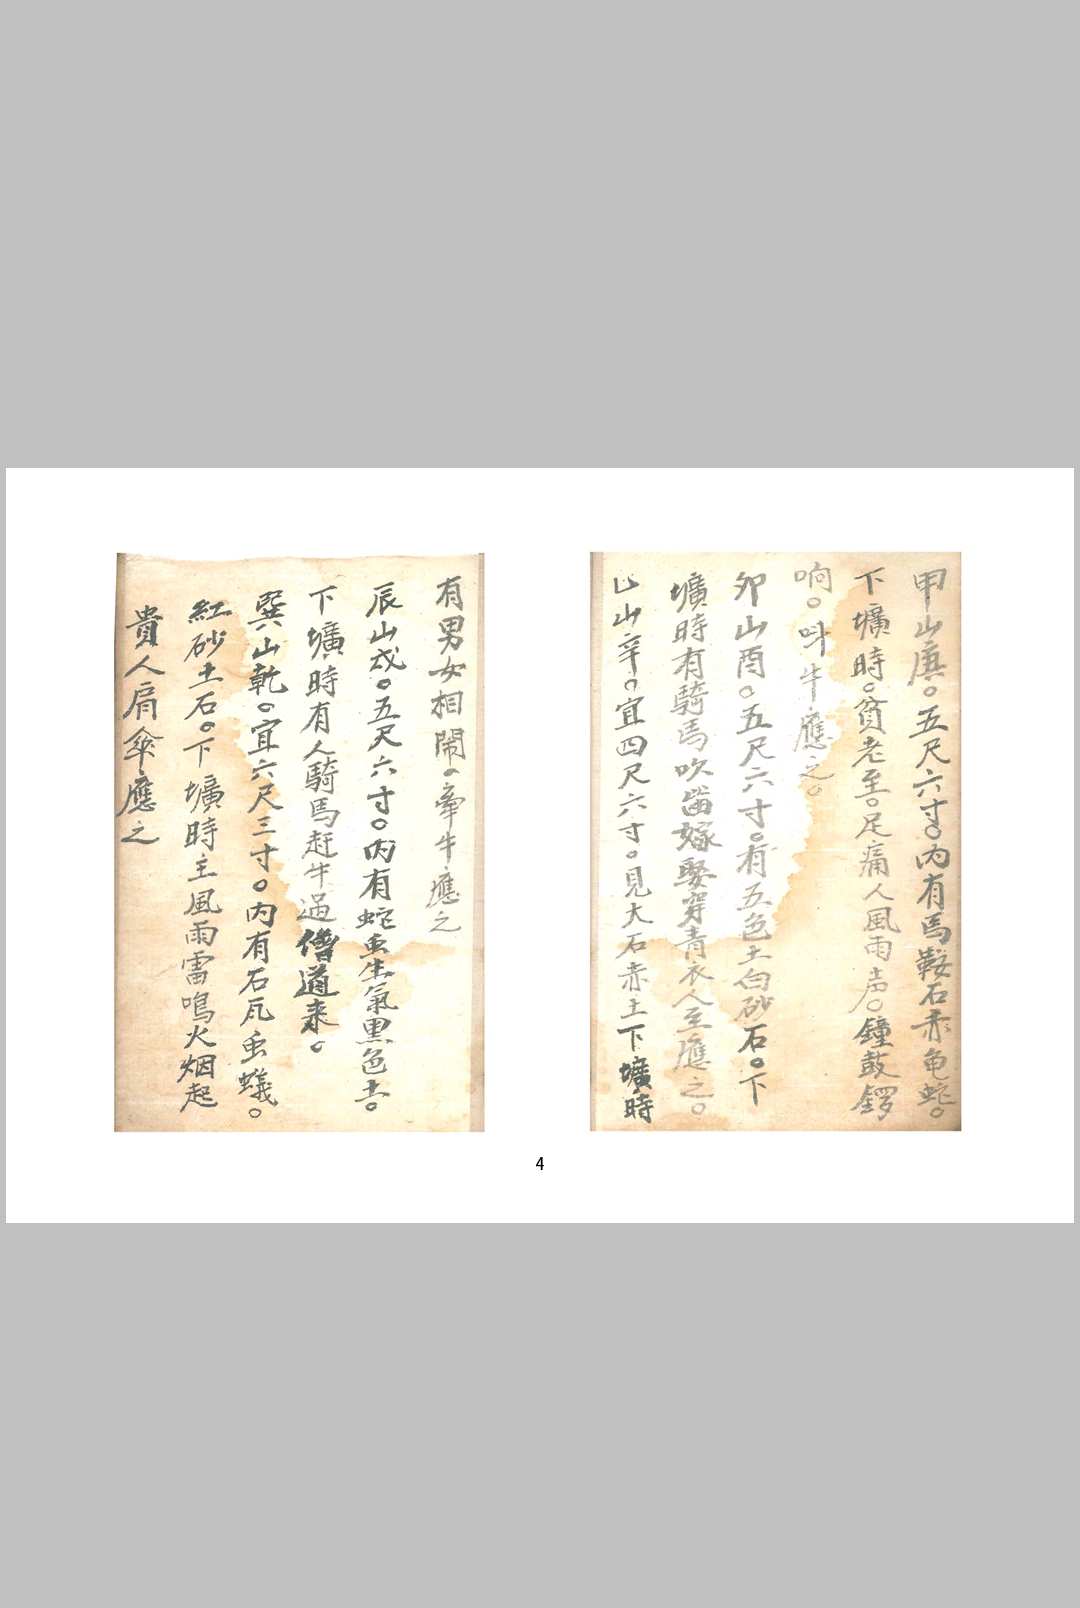 甲山庚。五尺六寸。内有馬鞍石赤龟蛇。
下壙時。貧老至。足痛人風雨声。鐘鼓鑼
响。叫牛應之。
卯山酉。五尺六寸。有五色土白砂石。下
壙時有騎馬吹笛嫁娶穿青衣人至應之。
山辛。宜四尺六寸。見大石赤土下壙時
有男女相鬧、牽牛應之
辰山戌。五尺六寸。内有蛇虫生氣黒色土。
下壙時有人騎馬赶牛過僧道来。
巽山乾。宜六尺三寸。内有石瓦虫蟻。
紅砂土石。下壙時主風雨雷鳴火烟起
貴人肩傘應之
4